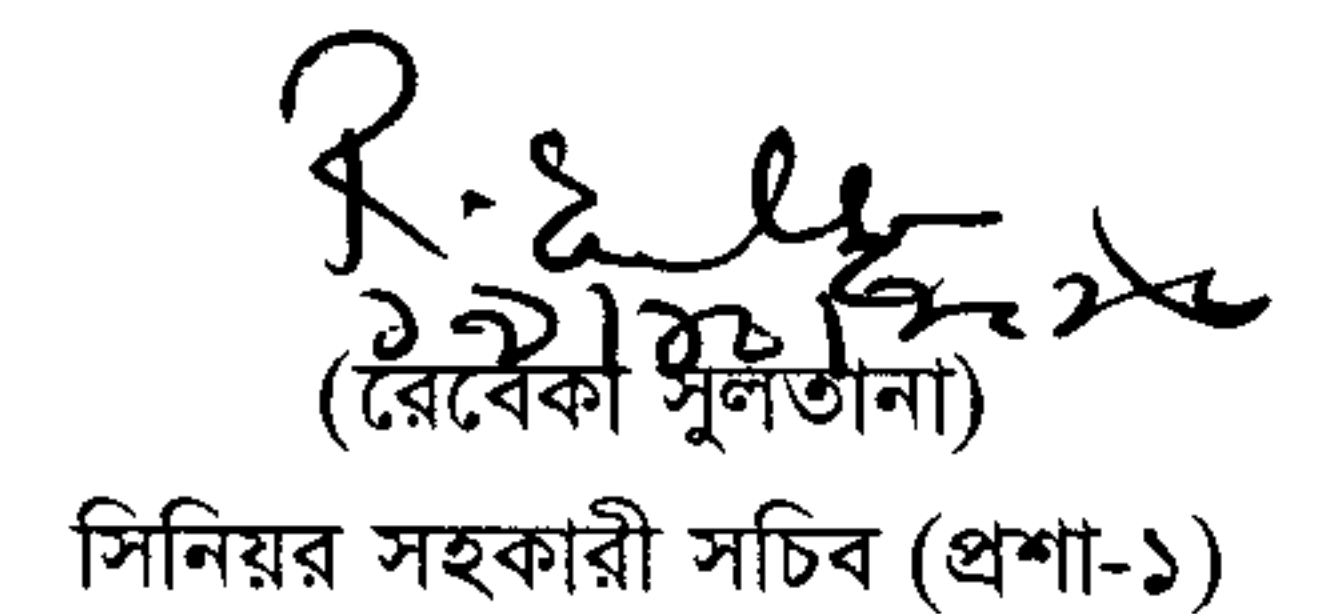 (রেবেকা সুলতানা)
সিনিয়র সহকারী সচিব (প্রশা-১)